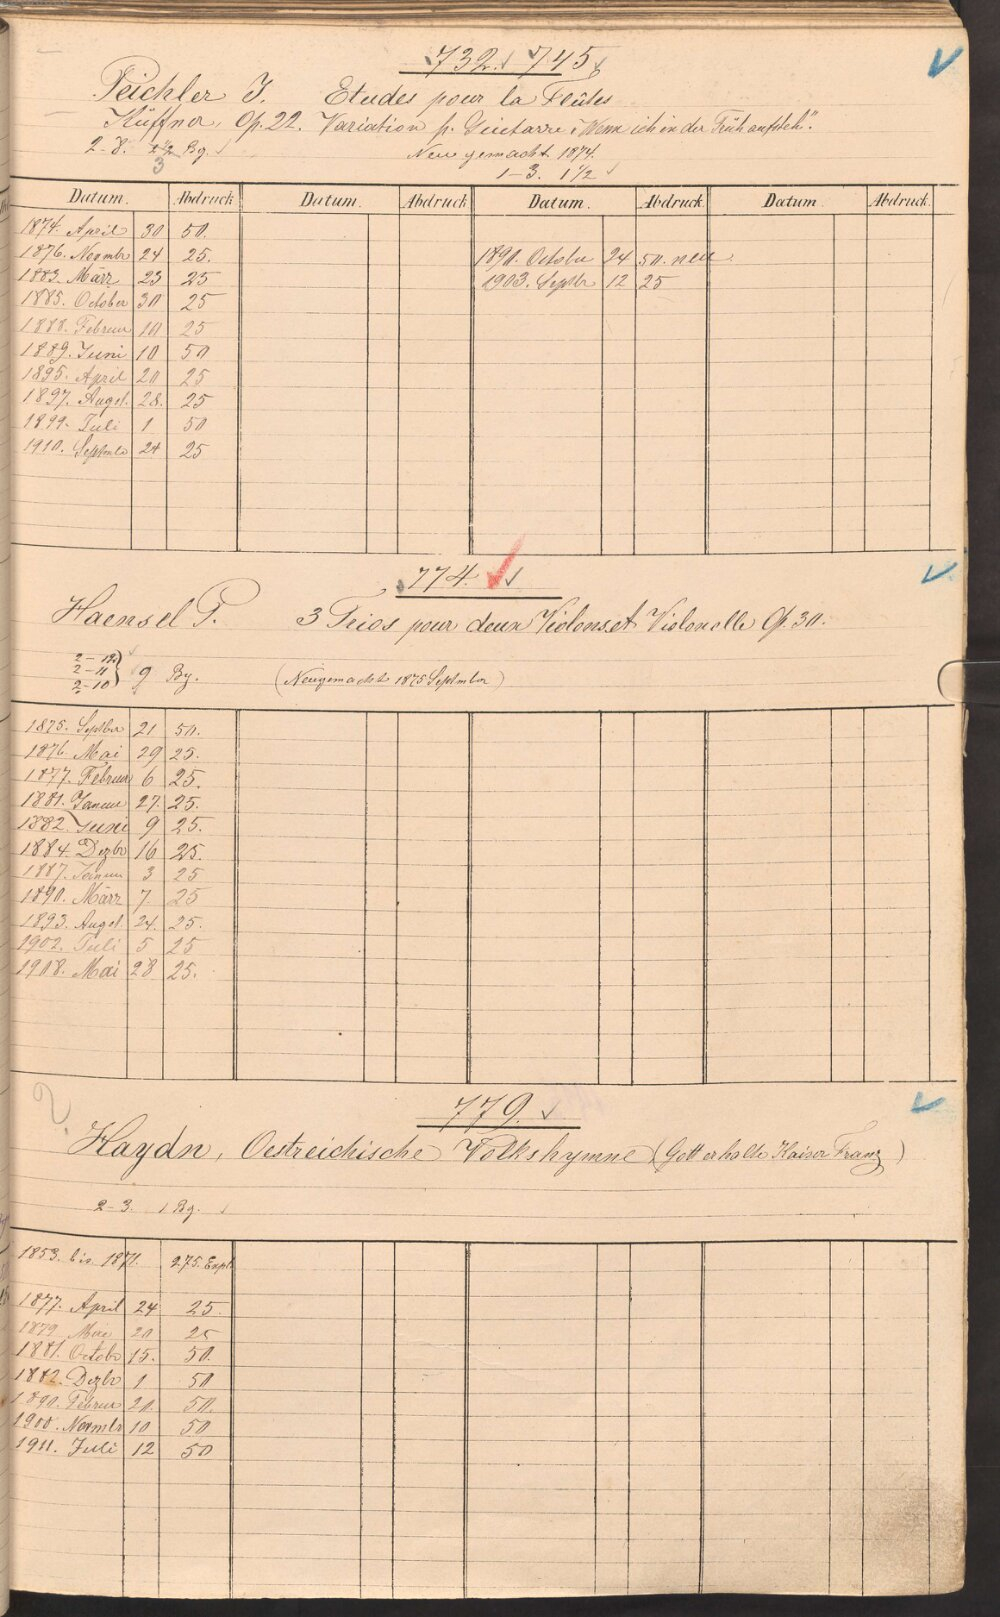 732. 745
Peichler J. Etudes pour la Flûtes
Küffner, Op. 22. Variation p. Guitarre "Wenn ich in der Früh aufsteh".
2-8. 2½ Bg.
3
Neu gemacht 1874.
1-3. 1½
Datum. Abdruck Datum. Abdruck Datum. Abdruck. Datum. Abdruck.
1874. April 30 50.
1876. Novmbr 24 25. 1890. October 24 50. neu
1883. März 23 25 1903. Septbr 12 25
1885. October 30 25
1888. Februar 10 25
1889. Juni 10 50
1895. April 20 25
1897. Augst. 28. 25
1899. Juli 1 50
1910. Septmbr 24 25
774.
Haensel P. 3 Trios pour deux Violons et Violoncelle Op. 30.
2-12
2-11 9 Bg. (Neugemacht 1875 September)
2-10
1875. Septber 21 50.
1876. Mai 29 25.
1877. Februar 6 25.
1881. Januar 27. 25.
1882. Juni 9 25.
1884. Dezbr 16 25.
1887. Januar 3 25
1890. März 7. 25
1893. Augst 24. 25.
1902. Juli 5 25
1908. Mai 28 25.
779.
Haydn, Oestreichische Volkshymne (Gott erhalte Kaiser Franz)
2-3. 1 Bg.
1853. bis 1871. 275. Expl.
1877. April 24 25.
1879 Mai 20 25
1881. Octobr 15. 50.
1882. Dezbr 1 50
1890. Februar 20. 50.
1900. Novmbr 10 50
1911. Juli 12 50